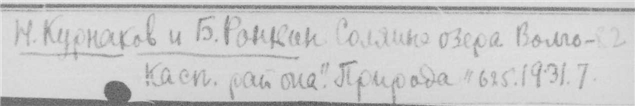 Н. Курнаков и Б. Ронкин Соляные озера Волго-
Касп. района". Природа" 1931. 7.